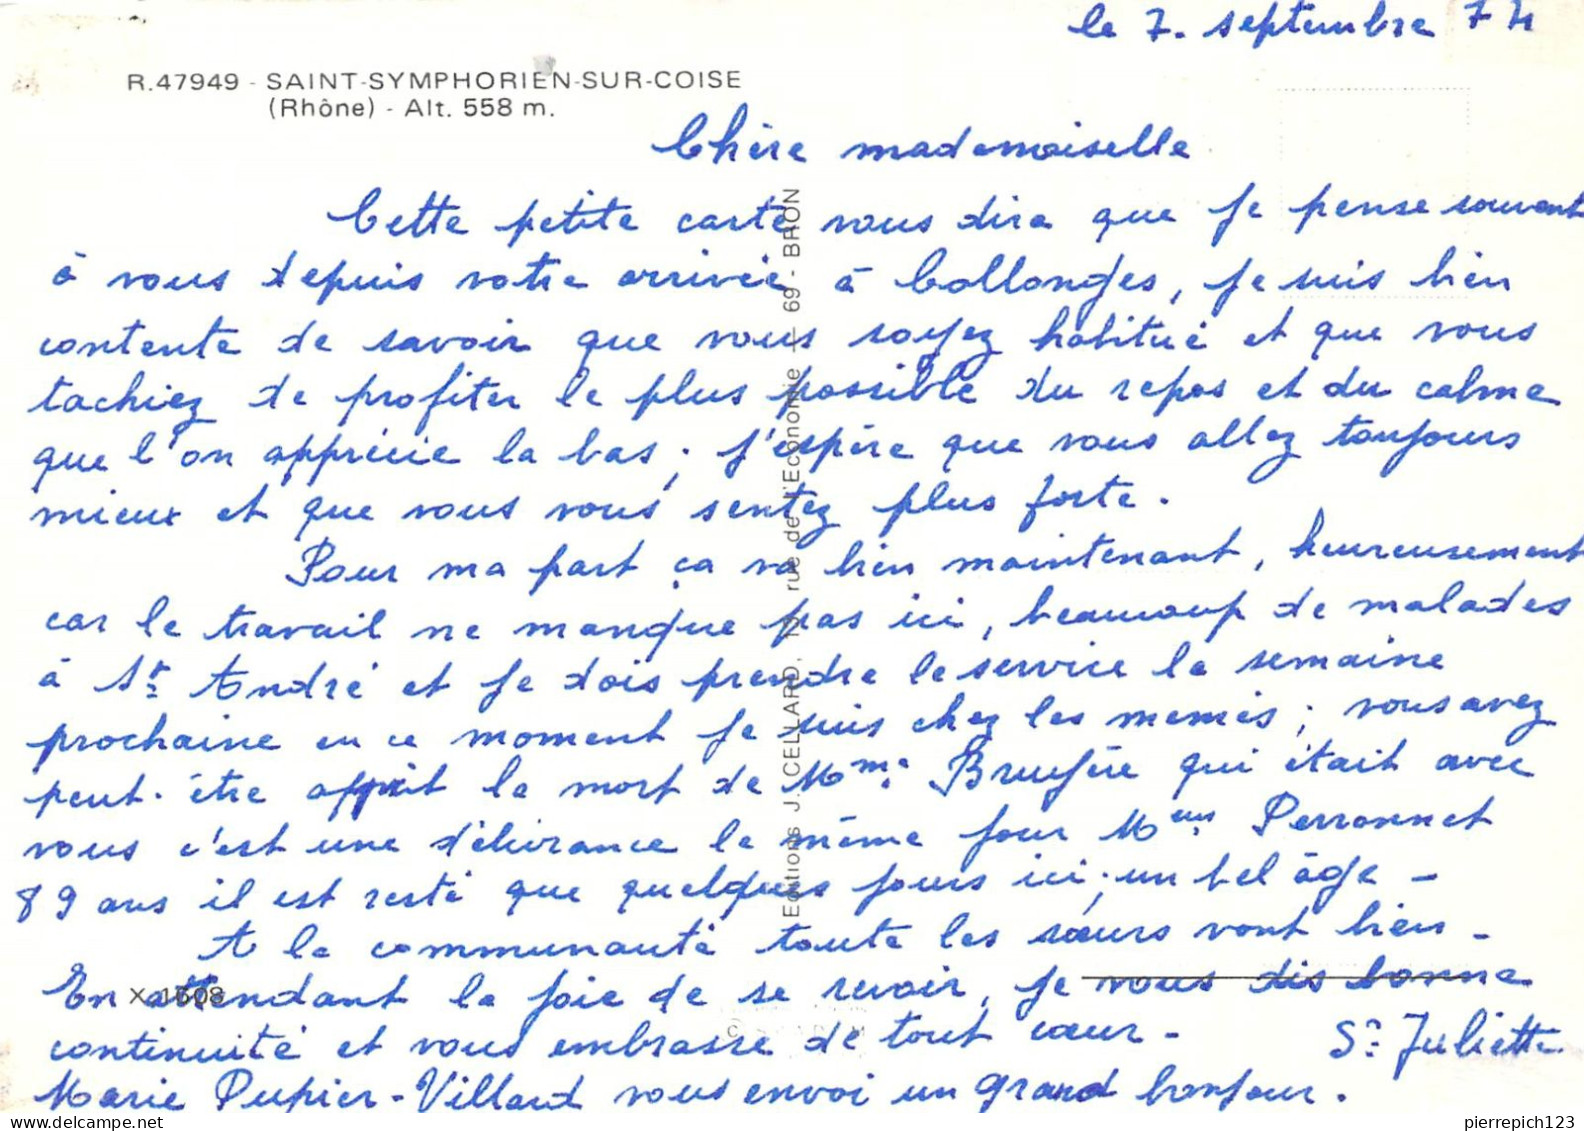 le 7. septembre 74
R.47949 - SAINT-SYMPHORIEN-SUR-COISE
(Rhône) - Alt. 558 m.
Chère mademoiselle
Cette petite carte vous dira que je pense souvent
à vous depuis votre arrivée à Collonges, je suis bien
contente de savoir que vous soyez habitué et que vous
tachiez de profiter le plus possible du repos et du calme
que l'on apprécie la bas; j'espère que vous allez toujours
mieux et que vous vous sentez plus forte.
Pour ma part ça va bien maintenant, heureusement
car le travail ne manque pas ici, beaucoup de malades
à St André et je dois prendre le service la semaine
prochaine en ce moment je suis chez les memés; vous avez
peut-être apprit la mort de Mme Bruyère qui était avec
vous c'est une délivrance le même jour Meur Perronnet
89 ans il est resté que quelques jours ici; un bel âge -
A la communauté toute les sœurs vont bien -
En attendant la joie de se revoir, je vous dis bonne
continuité et vous embrasse de tout cœur - Sr Juliette
Marie Pupier-Villard vous envoi un grand bonjour.
Editions J. CELLARD, rue de l'Economie - 69 - BRON
X 1608
delcampe.net
pierrepich123